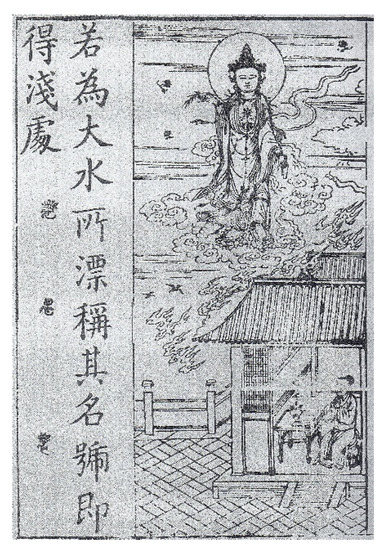 若為大水所漂稱其名號即
得淺處